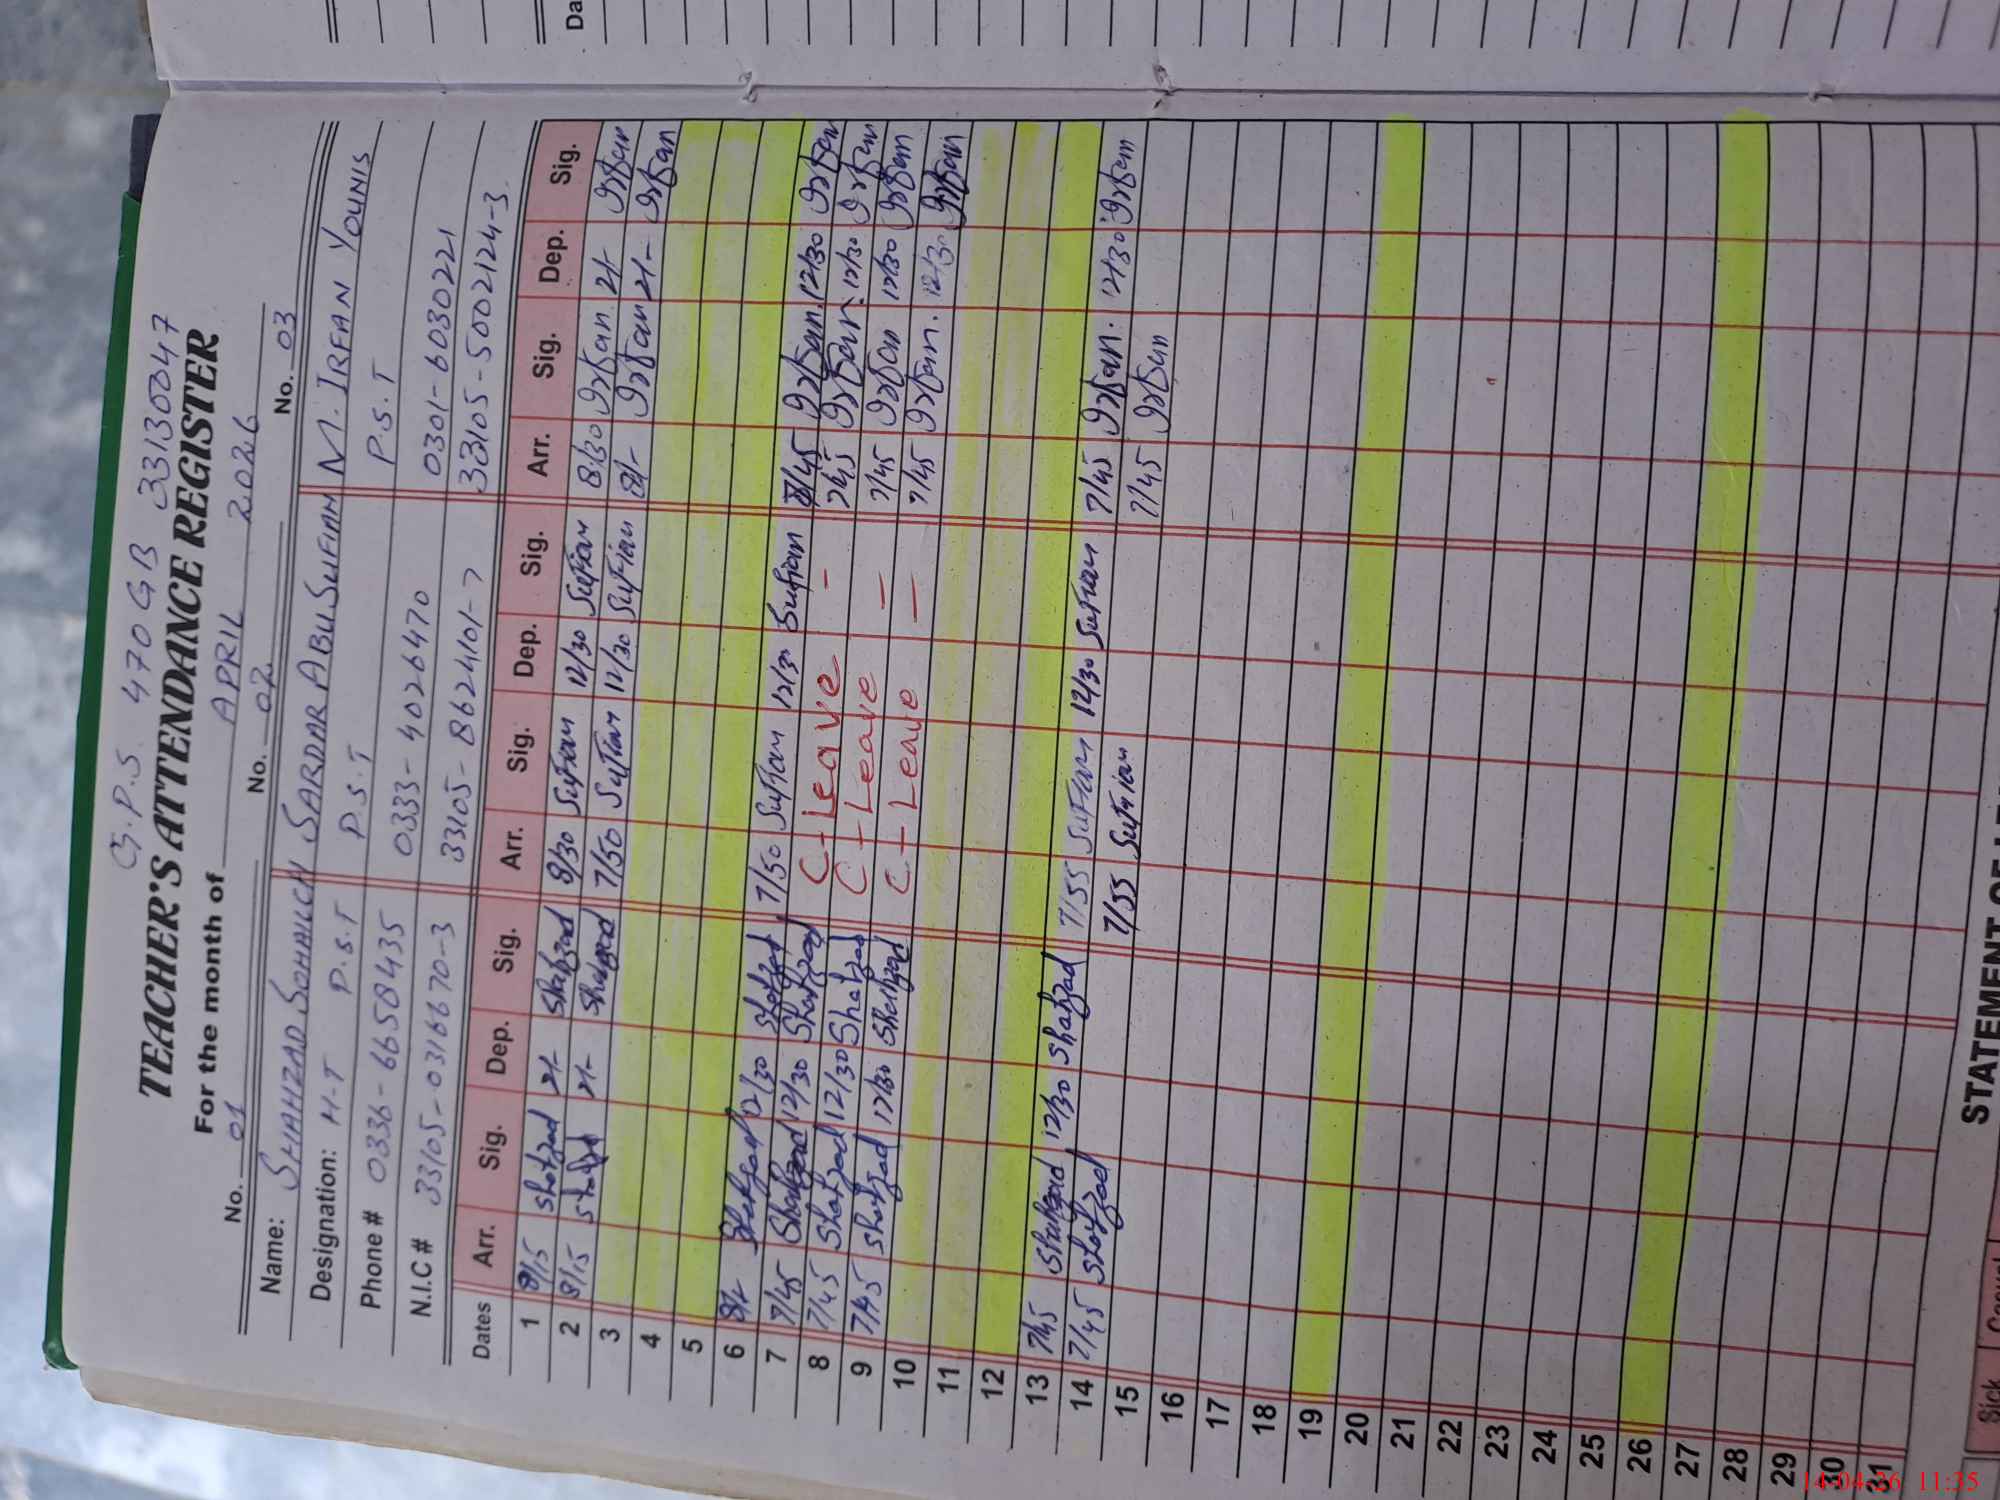 G.P.S 470 GB 33130047
TEACHER'S ATTENDANCE REGISTER
For the month of APRIL 2026
No. 01 No. 02 No. 03
Name: SHAHZAD SOHAIL SARDAR ABU SUFIAN M. IRFAN YOUNIS
Designation: H-T P.S.T P.S.T P.S.T
Phone # 0336-6658435 0333-4026470 0301-6030221
N.I.C # 33105-0316670-3 33105-8624101-7 33105-5002124-3
Dates Arr. Sig. Dep. Sig. Arr. Sig. Dep. Sig. Arr. Sig. Dep. Sig.
1 8/15 Shahzad 2/- Shahzad 8/30 Sufian 12/30 Sufian 8/30 Irfan 2/- Irfan
2 8/15 Shahzad 2/- Shahzad 7/50 Sufian 12/30 Sufian 8/- Irfan 2/- Irfan
3
4
5
6 8/- Shahzad 12/30 Shahzad 7/50 Sufian 12/30 Sufian 7/45 Irfan 12/30 Irfan
7 7/45 Shahzad 12/30 Shahzad C-Leave - 7/45 Irfan 12/30 Irfan
8 7/45 Shahzad 12/30 Shahzad C-Leave - 7/45 Irfan 12/30 Irfan
9 7/45 Shahzad 12/30 Shahzad C-Leave - 7/45 Irfan 12/30 Irfan
10
11
12
13 7/45 Shahzad 12/30 Shahzad 7/55 Sufian 12/30 Sufian 7/45 Irfan 12/30 Irfan
14 7/45 Shahzad 7/55 Sufian 7/45 Irfan
15
16
17
18
19
20
21
22
23
24
25
26
27
28
29
30
31
STATEMENT OF
Sick Casual
14-04-26 11:35